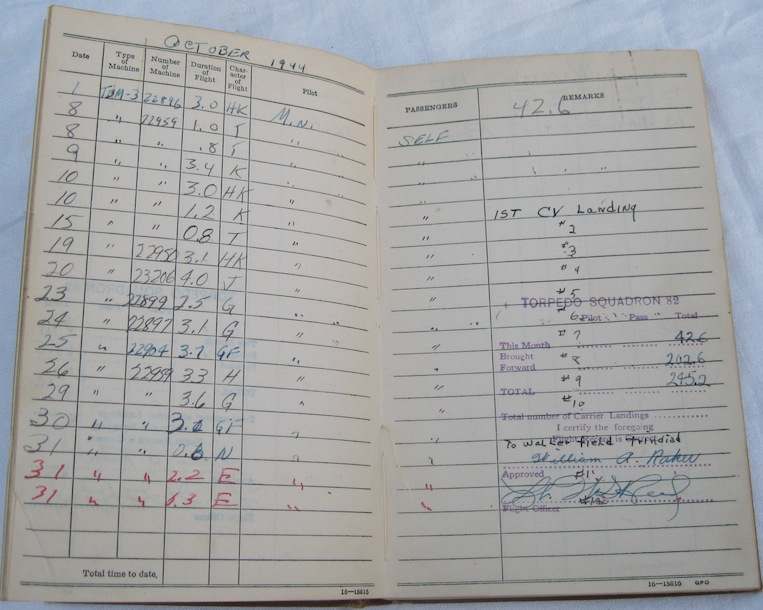 OCTOBER 1944
Date Type of Machine Number of Machine Duration of Flight Character of Flight Pilot
1 TBM-3 22896 3.0 HK M.N.
8 " 22959 1.0 T "
8 " " .8 T "
9 " " 3.4 K "
10 " " 3.0 HK "
10 " " 1.2 K "
15 " " 0.8 T "
19 " 22950 3.1 HK "
20 " 23206 4.0 J "
23 " 22899 2.5 G "
24 " 22897 3.1 G "
25 " 3.7 GF "
26 " 22959 3.3 H "
29 " " 3.6 G "
30 " " GF "
31 " " N "
31 " " 2.2 E "
31 " " 1.3 E "
Total time to date,
16—15615
PASSENGERS REMARKS
42.6
SELF
" 1ST CV Landing
" #2
" #3
" #4
" #5
TORPEDO SQUADRON 82
" #6 Pilot Pass Total
" #7
This Month 42.6
Brought Forward #8 202.6
TOTAL #9 245.2
" #10
Total number of Carrier Landings
I certify the foregoing
To Waller Field Trinidad
William A.
Approved #11
Flight Officer
16—15615 GPO